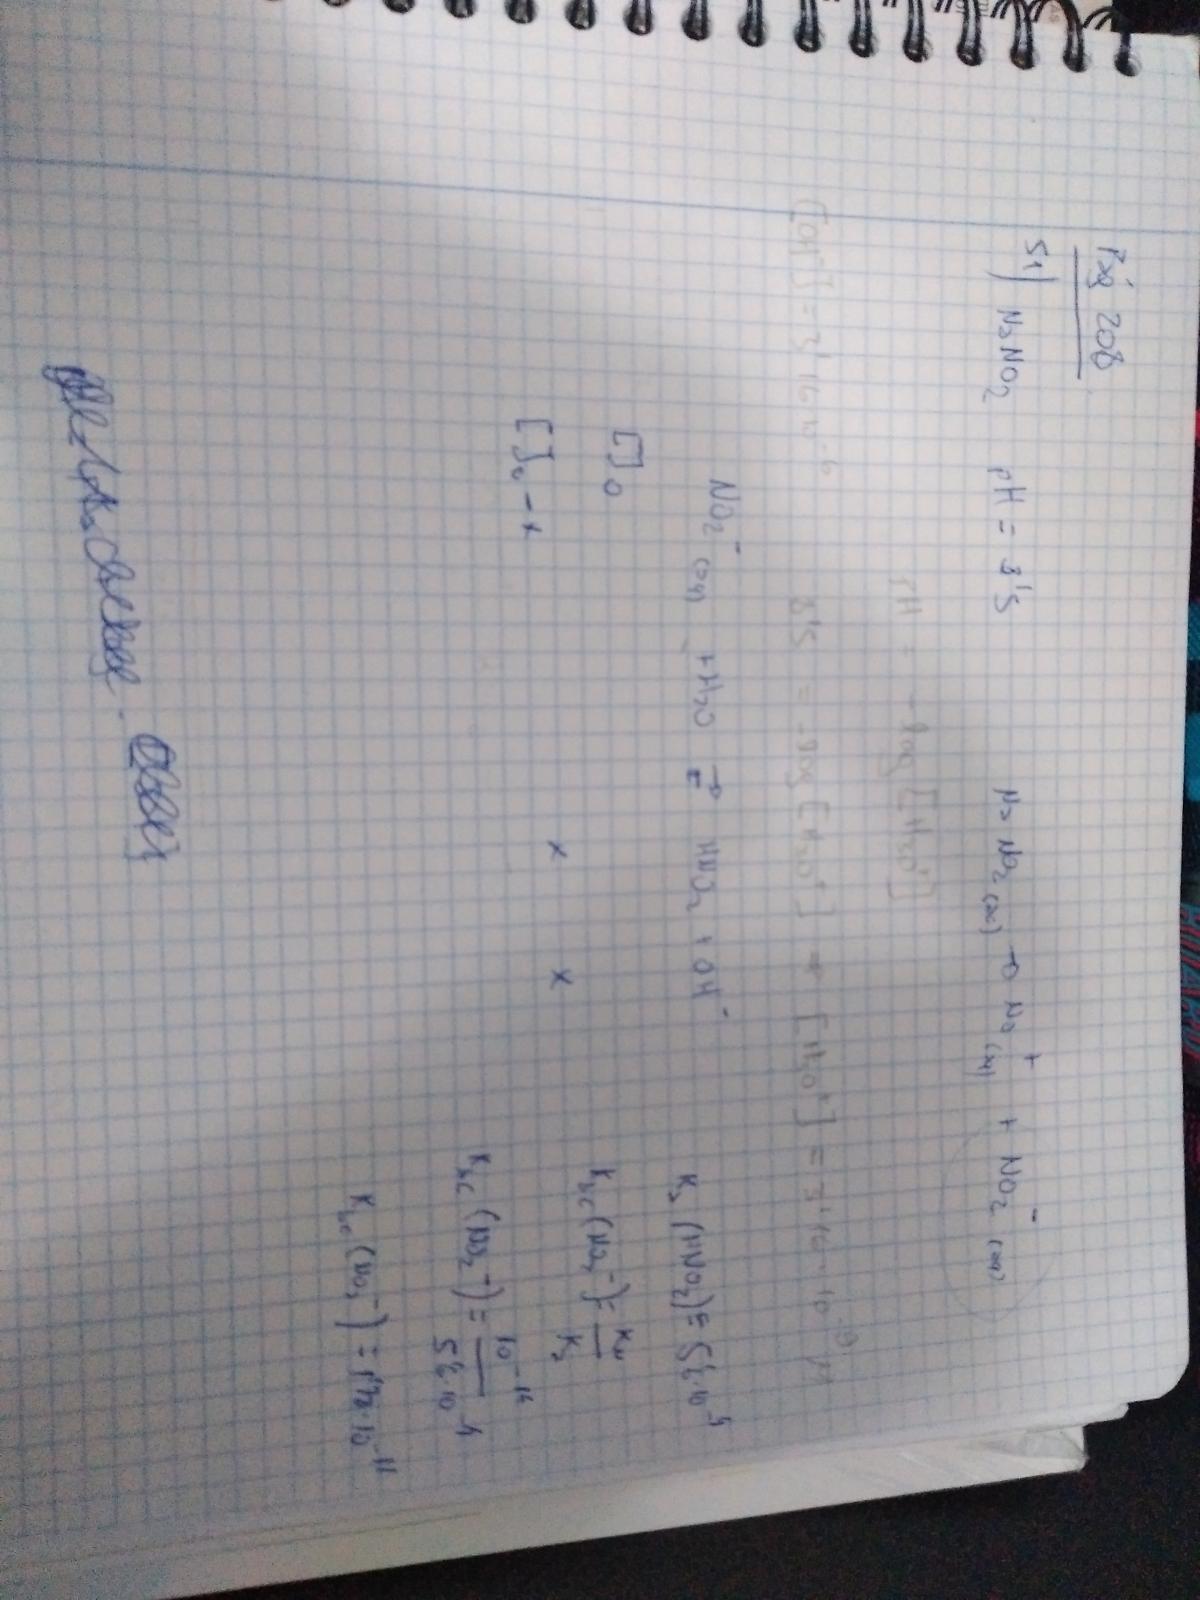 Pág 208
51) NaNO2 pH = 8'5 NaNO2 (ac) → Na+ (aq) + NO2- (aq)
pH = -log [H3O+]
[OH-] = 3'16·10-6 8'5 = -log [H3O+] → [H3O+] = 3'16·10-9 M
NO2- (aq) + H2O ⇄ HNO2 + OH-
[ ]0
[ ]0 - x x x
Ka (HNO2) =
Kbc (NO2-) = Kw / Ka
Kbc (NO2-) = 10-14 /
Kbc (NO2-) =